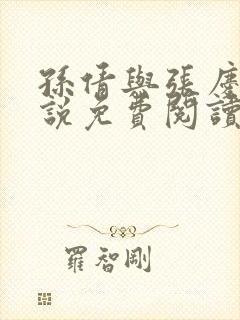 孫倩與張慶
說免費閱讀
羅智剛